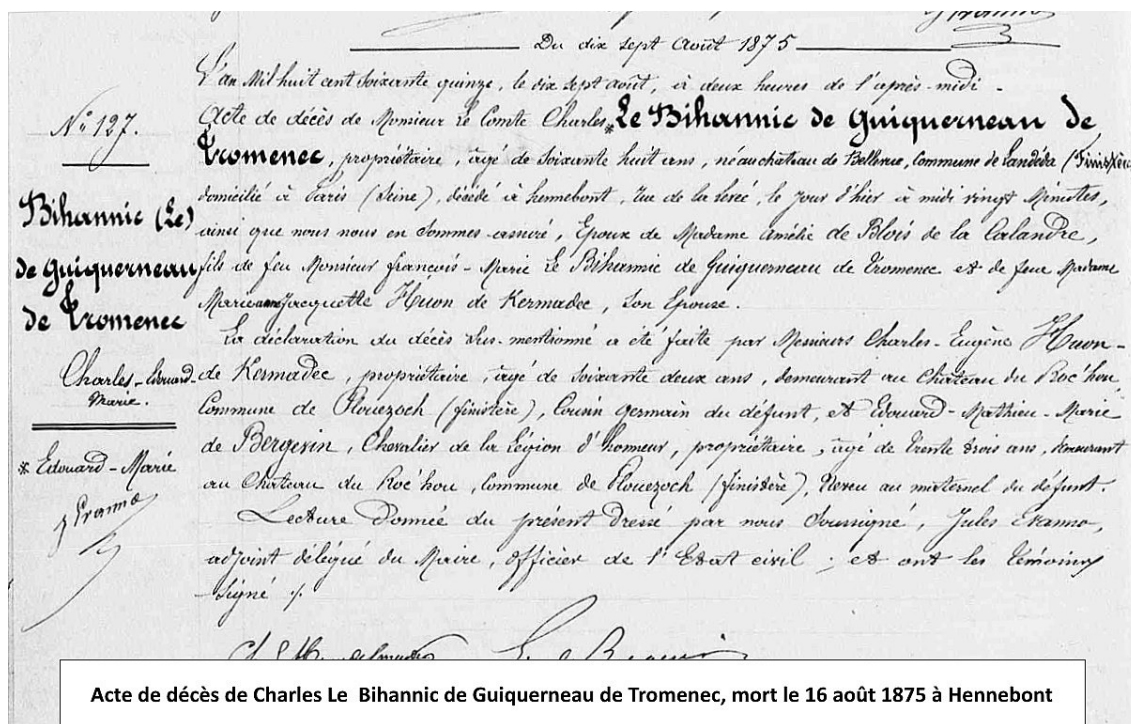 Du dix sept Août 1875
L'an Mil huit cent soixante quinze, le dix sept août, à deux heures de l'après-midi.
N° 127.
Acte de décès de Monsieur Le Comte Charles * Le Bihannic de Guiquerneau de
Tromenec, propriétaire, âgé de soixante huit ans, né au chateau de Bellevue, Commune de Landéda (Finistère)
domicilié à Paris (Seine), décédé à hennebont, rue de la , le jour d'hier à midi vingt Minutes,
Bihannic (Le)
ainsi que nous nous en sommes assuré, Epoux de Madame Amélie de Blois de la Calandre,
de Guiquerneau
fils de feu Monsieur françois-Marie Le Bihannic de Guiquerneau de Tromenec et de feue Madame
de Tromenec
Marie Jacquette Huon de Kermadec, son Epouse.
La déclaration du décès sus-mentionné a été faite par Messieurs Charles-Eugène Huon-
Charles-Edouard-
Marie.
de Kermadec, propriétaire, âgé de soixante deux ans, demeurant au Chateau du Roc'hou,
Commune de Plouezoch (finistère), Cousin germain du défunt, et Edouard-Mathieu-Marie
de Bergevin, Chevalier de la Légion d'honneur, propriétaire, âgé de trente trois ans, demeurant
* Edouard-Marie
J Evanno
au Chateau du Roc'hou, Commune de Plouezoch (finistère), Neveu au maternel du défunt.
Lecture donnée du présent dressé par nous soussigné, Jules Evanno,
adjoint délégué du Maire, officier de l'Etat civil ; et ont les témoins
signé /.
Acte de décès de Charles Le Bihannic de Guiquerneau de Tromenec, mort le 16 août 1875 à Hennebont